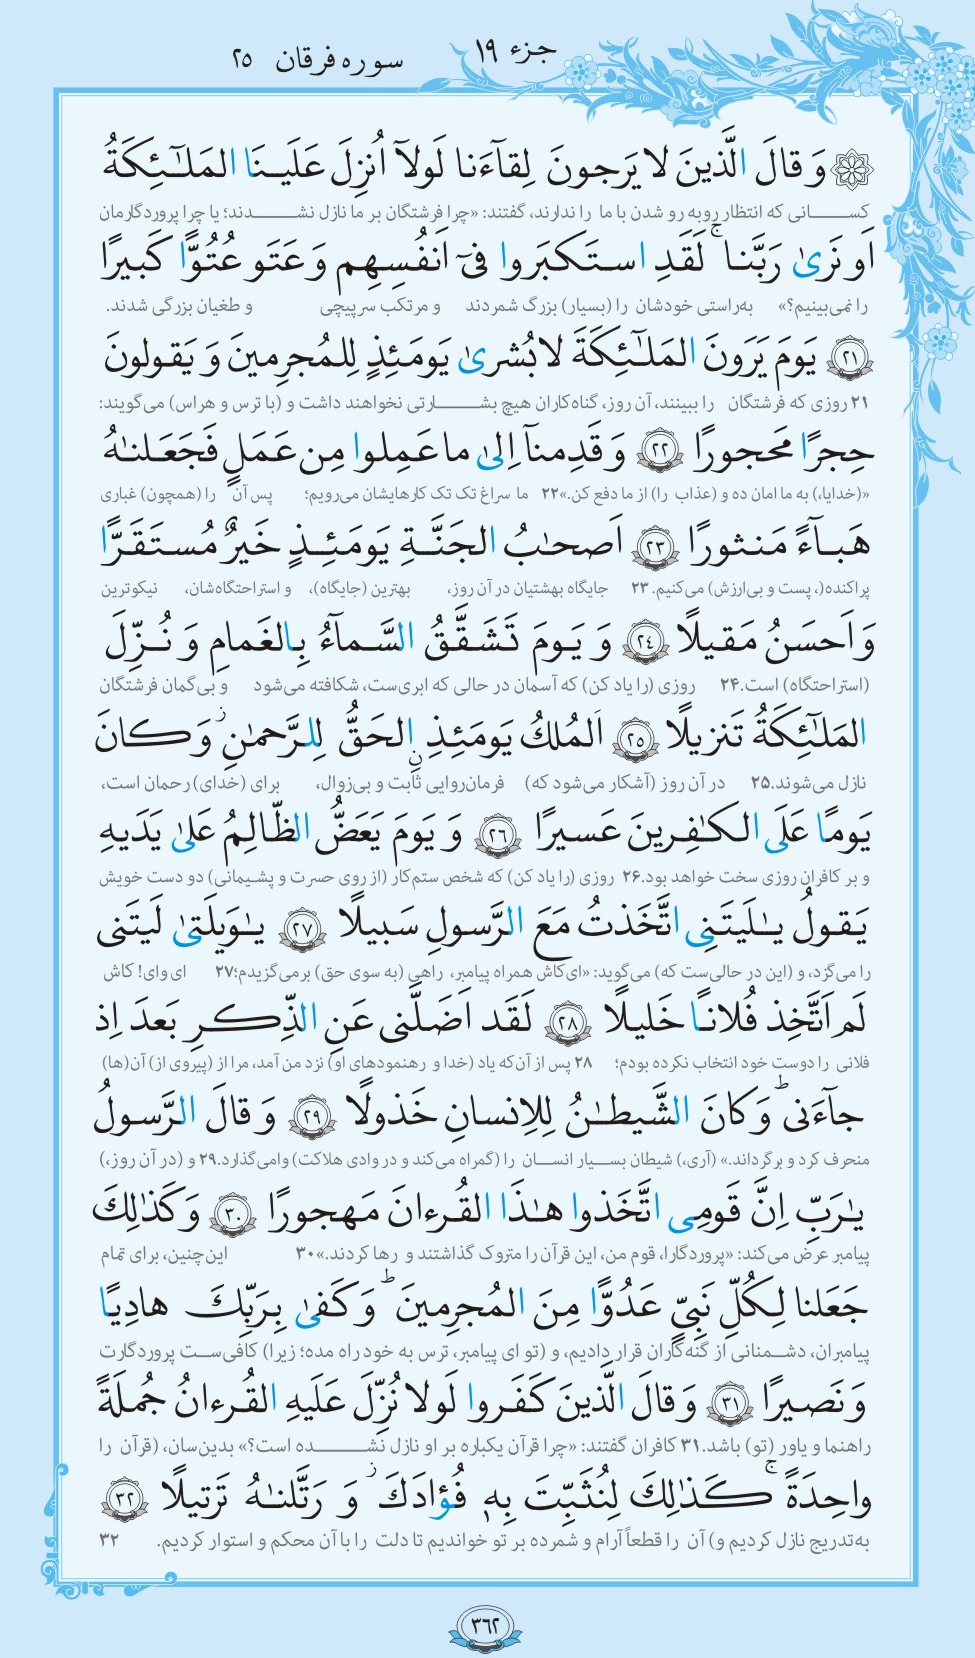 جزء ۱۹
سوره فرقان ۲۵
وَ قالَ الَّذینَ لا یَرجونَ لِقآءَنا لَولآ اُنزِلَ عَلَیـنَا المَلـٰٓـئِکَةُ
کسـانی که انتظار روبه رو شدن با ما را ندارند، گفتند: «چرا فرشتگان بر ما نازل نشـدند؛ یا چرا پروردگارمان
اَو نَریٰ رَبَّنا ۗ لَقَدِ استَکبَروا فیٓ اَنفُسِهِم وَ عَتَو عُتُوًّا کَبیرًا
را نمی‌بینیم؟» به‌راستی خودشان را (بسیار) بزرگ شمردند و مرتکب سرپیچی و طغیان بزرگی شدند.
۲۱ یَومَ یَرَونَ المَلـٰٓئِکَةَ لا بُشریٰ یَومَئِذٍ لِلمُجرِمینَ وَ یَقولونَ
۲۱ روزی که فرشتگان را ببینند، آن روز، گناه‌کاران هیچ بشـارتی نخواهند داشت و (با ترس و هراس) می‌گویند:
حِجرًا مَحجورًا ۲۲ وَ قَدِمنآ اِلیٰ ما عَمِلوا مِن عَمَلٍ فَجَعَلنـٰهُ
«(خدایا،) به ما امان ده و (عذاب را) از ما دفع کن.» ۲۲ ما سراغ تک تک کارهایشان می‌رویم؛ پس آن را (همچون) غباری
هَبـآءً مَنـثورًا ۲۳ اَصحـٰبُ الجَنَّـةِ یَومَئِـذٍ خَیرٌ مُستَقَرًّا
پراکنده(، پست و بی‌ارزش) می‌کنیم. ۲۳ جایگاه بهشتیان در آن روز، بهترین (جایگاه)، و استراحتگاه‌شان، نیکوترین
وَ اَحسَنُ مَقیلًا ۲۴ وَ یَـومَ تَشَقَّقُ السَّمـآءُ بِالغَمامِ وَ نُـزِّلَ
(استراحتگاه) است. ۲۴ روزی (را یاد کن) که آسمان در حالی که ابری‌ست، شکافته می‌شود و بی‌گمان فرشتگان
المَلـٰٓئِکَةُ تَنزیلًا ۲۵ اَلمُلکُ یَومَئِذٍ الحَقُّ لِلرَّحمـٰنِ ۚ وَ کـانَ
نازل می‌شوند. ۲۵ در آن روز (آشکار می‌شود که) فرمان‌روایی ثابت و بی‌زوال، برای (خدای) رحمان است،
یَومًا عَلَی الـکـٰفِرینَ عَسیرًا ۲۶ وَ یَومَ یَعَضُّ الظّالِمُ عَلیٰ یَدَیهِ
و بر کافران روزی سخت خواهد بود. ۲۶ روزی (را یاد کن) که شخص ستم‌کار (از روی حسرت و پشیمانی) دو دست خویش
یَقولُ یـٰلَیتَنِی اتَّخَذتُ مَعَ الرَّسولِ سَبیلًا ۲۷ یـٰوَیلَتیٰ لَیتَنی
را می‌گزد، و (این در حالی‌ست که) می‌گوید: «ای‌کاش همراه پیامبر، راهی (به سوی حق) برمی‌گزیدم؛ ۲۷ ای وای! کاش
لَم اَتَّخِذ فُلانًـا خَلیلًا ۲۸ لَقَد اَضَلَّنی عَنِ الذِّکـرِ بَعدَ اِذ
فلانی را دوست خود انتخاب نکرده بودم؛ ۲۸ پس از آن‌که یاد (خدا و رهنمودهای او) نزد من آمد، مرا از (پیروی از) آن(ها)
جآءَنی ۗ وَ کانَ الشَّیطـٰنُ لِلاِنسانِ خَذولًا ۲۹ وَ قالَ الرَّسولُ
منحرف کرد و برگرداند.» (آری،) شیطان بسـیار انسـان را (گمراه می‌کند و در وادی هلاکت) وامی‌گذارد. ۲۹ و (در آن روز،)
یـٰرَبِّ اِنَّ قَومِی اتَّخَذوا هـٰذَا القُرءانَ مَهجورًا ۳۰ وَ کَذٰلِکَ
پیامبر عرض می‌کند: «پروردگارا، قوم من، این قرآن را متروک گذاشتند و رها کردند.» ۳۰ این‌چنین، برای تمام
جَعَلنا لِـکُلِّ نَبِیٍّ عَدُوًّا مِنَ المُجرِمینَ ۗ وَ کَفیٰ بِرَبِّکَ هادِیًا
پیامبران، دشـمنانی از گنه‌کاران قرار دادیم، و (تو ای پیامبر، ترس به خود راه مده؛ زیرا) کافی‌سـت پروردگارت
وَ نَصیرًا ۳۱ وَ قالَ الَّذینَ کَفَروا لَولا نُزِّلَ عَلَیهِ القُرءانُ جُملَةً
راهنما و یاور (تو) باشد. ۳۱ کافران گفتند: «چرا قرآن یکباره بر او نازل نشـده است؟» بدین‌سان، (قرآن را
واحِدَةً ۚ کَذٰلِکَ لِنُثَبِّتَ بِهٖ فُؤادَکَ ۖ وَ رَتَّلنـٰهُ تَرتیلًا ۳۲
به‌تدریج نازل کردیم و) آن را قطعاً آرام و شمرده بر تو خواندیم تا دلت را با آن محکم و استوار کردیم. ۳۲
۳۶۲